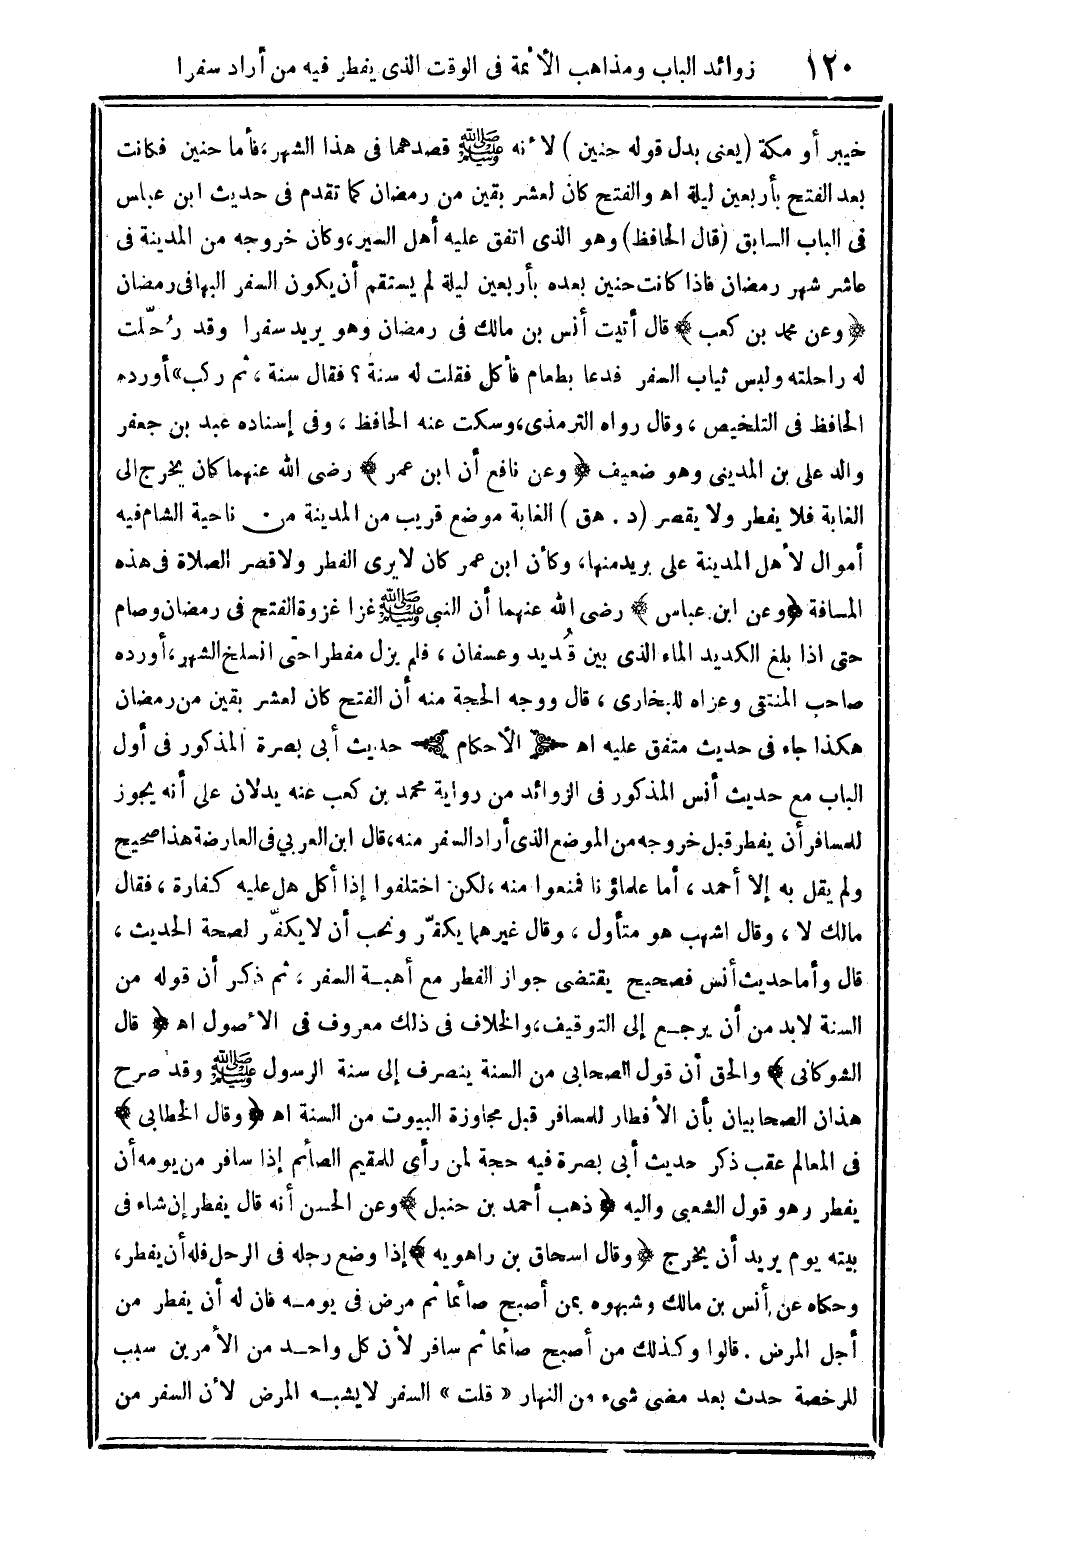 ١٢٠ زوائد الباب ومذاهب الأئمة فى الوقت الذى يفطر فيه من أراد سفرا
خيبر أو مكة (يعنى بدل قوله حنين) لأنه ﷺ قصدهما فى هذا الشهر، فأما حنين فكانت
بعد الفتح بأربعين ليلة اه والفتح كان لعشر بقين من رمضان كما تقدم فى حديث ابن عباس
فى الباب السابق (قال الحافظ) وهو الذى اتفق عليه أهل السير، وكان خروجه من المدينة فى
عاشر شهر رمضان فاذا كانت حنين بعده بأربعين ليلة لم يستقم أن يكون السفر اليها فى رمضان
﴿وعن محمد بن كعب﴾ قال أتيت أنس بن مالك فى رمضان وهو يريد سفرا وقد رُحّلت
له راحلته ولبس ثياب السفر فدعا بطعام فأكل فقلت له سنة؟ فقال سنة، ثم ركب» أورده
الحافظ فى التلخيص، وقال رواه الترمذى، وسكت عنه الحافظ، وفى إسناده عبد بن جعفر
والد على بن المدينى وهو ضعيف ﴿وعن نافع أن ابن عمر﴾ رضى الله عنهما كان يخرج الى
الغابة فلا يفطر ولا يقصر (د. هق) الغابة موضع قريب من المدينة من ناحية الشام فيه
أموال لأهل المدينة على بريد منها، وكأن ابن عمر كان لا يرى الفطر ولا قصر الصلاة فى هذه
المسافة ﴿وعن ابن عباس﴾ رضى الله عنهما أن النبى ﷺ غزا غزوة الفتح فى رمضان وصام
حتى اذا بلغ الكديد الماء الذى بين قُديد وعسفان، فلم يزل مفطرا حتى انسلخ الشهر، أورده
صاحب المنتقى وعزاه للبخارى، قال ووجه الحجة منه أن الفتح كان لعشر بقين من رمضان
هكذا جاء فى حديث متفق عليه اه ﴿الأحكام﴾ حديث أبى بصرة المذكور فى أول
الباب مع حديث أنس المذكور فى الزوائد من رواية محمد بن كعب عنه يدلان على أنه يجوز
للمسافر أن يفطر قبل خروجه من الموضع الذى أراد السفر منه، قال ابن العربي فى العارضة هذا صحيح
ولم يقل به إلا أحمد، أما علماؤنا فمنعوا منه، لكن اختلفوا إذا أكل هل عليه كفارة، فقال
مالك لا، وقال اشهب هو متأول، وقال غيرهما يكفّر ونحب أن لا يكفّر لصحة الحديث،
قال وأما حديث أنس فصحيح يقتضى جواز الفطر مع أهبة السفر، ثم ذكر أن قوله من
السنة لابد من أن يرجع إلى التوقيف، والخلاف فى ذلك معروف فى الأصول اه ﴿قال
الشوكانى﴾ والحق أن قول الصحابى من السنة ينصرف إلى سنة الرسول ﷺ وقد صرح
هذان الصحابيان بأن الأفطار للمسافر قبل مجاوزة البيوت من السنة اه ﴿وقال الخطابى﴾
فى المعالم عقب ذكر حديث أبى بصرة فيه حجة لمن رأى للمقيم الصائم إذا سافر من يومه أن
يفطر وهو قول الشعبى واليه ﴿ذهب أحمد بن حنبل﴾ وعن الحسن أنه قال يفطر إن شاء فى
بيته يوم يريد أن يخرج ﴿وقال اسحاق بن راهويه﴾ إذا وضع رجله فى الرحل فله أن يفطر،
وحكاه عن أنس بن مالك وشبهوه بمن أصبح صائما ثم مرض فى يومه فان له أن يفطر من
أجل المرض. قالوا وكذلك من أصبح صائما ثم سافر لأن كل واحد من الأمرين سبب
للرخصة حدث بعد مضى شىء من النهار «قلت» السفر لا يشبه المرض لأن السفر من